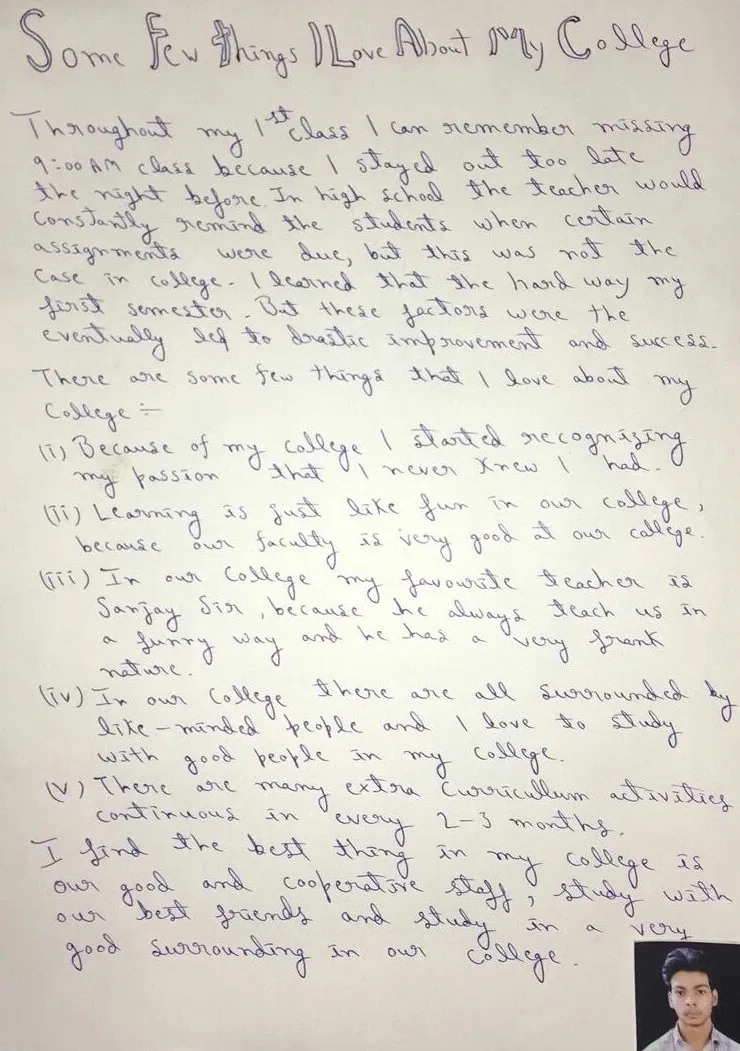 Some Few things I Love About My College
Throughout my 1st class I can remember missing
9:00 AM class because I stayed out too late
the night before. In high school the teacher would
constantly remind the students when certain
assignments were due, but this was not the
case in college. I learned that the hard way my
first semester. But these factors were the
eventually led to drastic improvement and success.
There are some few things that I love about my
College :-
(i) Because of my college I started recognizing
my passion that I never knew I had.
(ii) Learning is just like fun in our college,
because our faculty is very good at our college.
(iii) In our College my favourite teacher is
Sanjay Sir, because he always teach us in
a funny way and he has a very frank
nature.
(iv) In our College there are all surrounded by
like-minded people and I love to study
with good people in my college.
(v) There are many extra Curricullum activities
continuous in every 2-3 months.
I find the best thing in my college is
our good and cooperative staff, study with
our best friends and study in a very
good surrounding in our college.